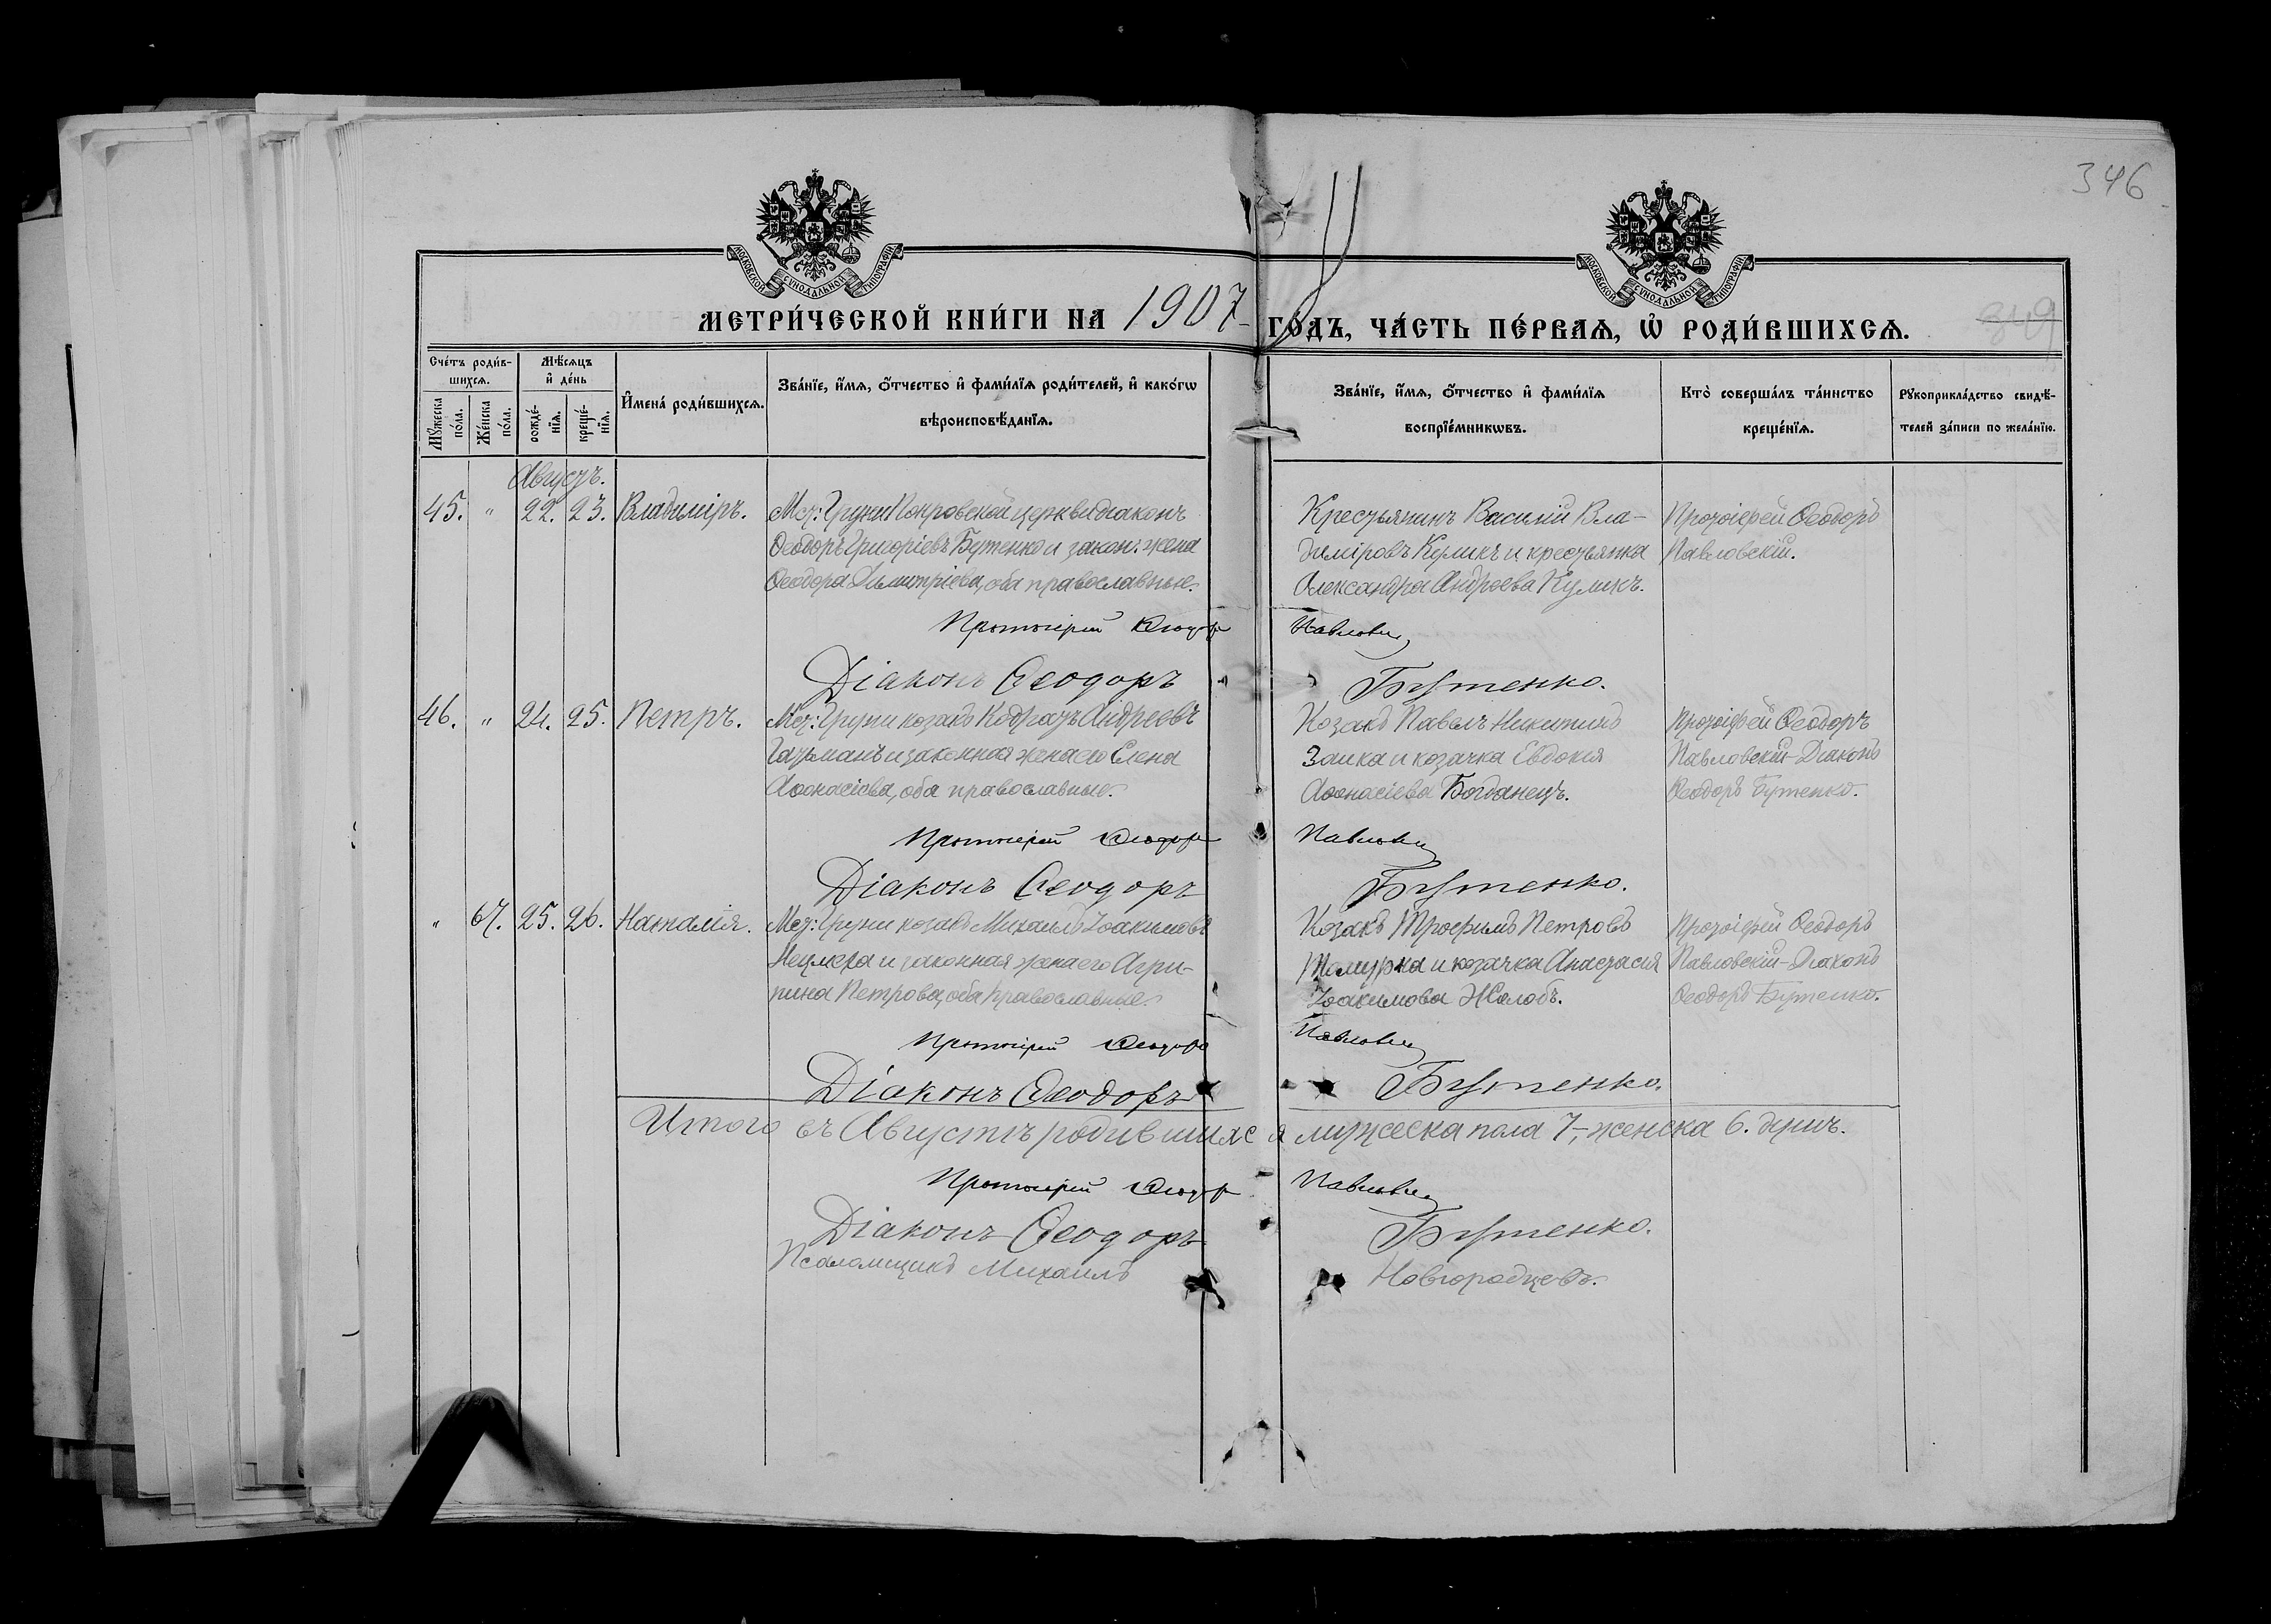 346
МОСКОВСКОЙ СѴНОДАЛЬНОЙ ТИПОГРАФІИ
МОСКОВСКОЙ СѴНОДАЛЬНОЙ ТИПОГРАФІИ
МЕТРИ́ЧЕСКОЙ КНИ́ГИ НА 1907 ГО́ДЪ, ЧА́СТЬ ПЕ́РВАѦ, Ѡ҆ РОДИ́ВШИХСѦ.
349
Сче́тъ роди́в-
шихсѧ.
Мѣ́сѧцъ
и҆ де́нь
Мꙋ́жеска
по́ла.
Же́нска
по́ла.
рожде́-
нїѧ.
креще́-
нїѧ.
И҆мена̀ роди́вшихсѧ.
Зва́нїе, и҆́мѧ, ѻ҆́тчество и҆ фами́лїѧ роди́телей, и҆ како́гѡ
вѣроисповѣ́данїѧ.
Зва́нїе, и҆́мѧ, ѻ҆́тчество и҆ фами́лїѧ
воспрїе́мникѡвъ.
Кто̀ соверша́лъ та́инство
креще́нїѧ.
Рꙋкоприкла́дство свидѣ́-
телей за́писи по жела́нїю.
Августъ.
45. " 22. 23. Владиміръ. Мст: Груни Покровской церкви діаконъ
Ѳеодоръ Григоріевъ Бутенко и закон: жена
Ѳеодора Димитріева, оба православные.
Крестьянинъ Василій Вла-
диміровъ Куликъ и крестьянка
Александра Андреева Куликъ.
Протоіерей Ѳеодоръ
Павловскій.
Протоіерей Ѳеодоръ Павловскі
Діаконъ Ѳеодоръ Бутенко.
46. " 24. 25. Петръ. Мст: Груни козакъ Кодратъ Андреевъ
и законная жена его Елена
Аѳонасіева, оба православные.
Козакъ Павелъ Никитинъ
Заика и козачка Евдокія
Аѳонасіева Богданецъ.
Протоіерей Ѳеодоръ
Павловскій Діаконъ
Ѳеодоръ Бутенко.
Протоіерей Ѳеодоръ Павловскі
Діаконъ Ѳеодоръ Бутенко.
" 67. 25. 26. Наталія. Мст: Груни козакъ Михаилъ Іоакимовъ
и законная жена его Агри-
пина Петрова, оба православные.
Козакъ Трофимъ Петровъ
и козачка Анастасія
Іоакимова Жалобъ.
Протоіерей Ѳеодоръ
Павловскій Діаконъ
Ѳеодоръ Бутенко.
Протоіерей Ѳеодоръ Павловскі
Діаконъ Ѳеодоръ Бутенко.
Итого въ Августѣ родившихся мужеска пола 7, женска 6. душъ.
Протоіерей Ѳеодоръ Павловскі
Діаконъ Ѳеодоръ Бутенко.
Псаломщикъ Михаилъ Новгородцевъ.